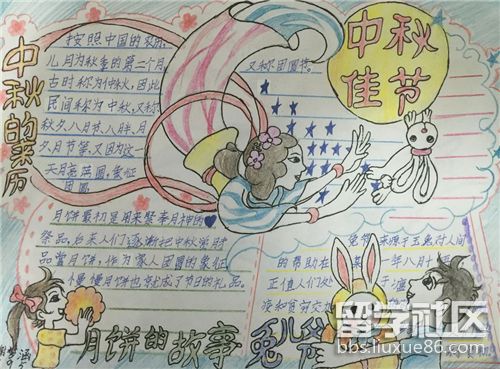 中秋佳节
中秋的来历
按照中国的农历,
八月为秋季的第二个月
古时称为仲秋,因此
民间称为中秋,又称
秋夕、八月节、八胖、月
夕、月节等,又因为这一
天月亮满圆,象征
团圆
又称团圆节。
月饼最初是用来祭奉月神的
祭品,后来人们逐渐把中秋赏月
品尝月饼,作为家人团圆的象征
慢慢月饼也就成了节日的礼品。
月饼的故事
来源于玉兔对人间
的帮助在
一年八月十
正值人们
兔儿
留学社区
bbs.liuxue86.com